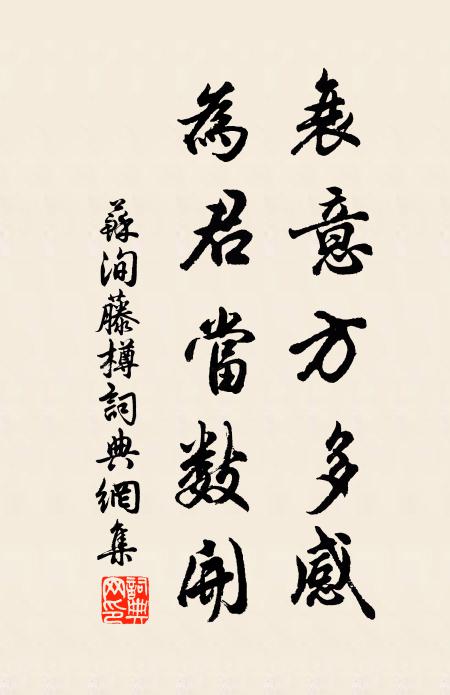 衰意方多感
為君當數開
蘇洵藤樽詞典網集
詞典网印